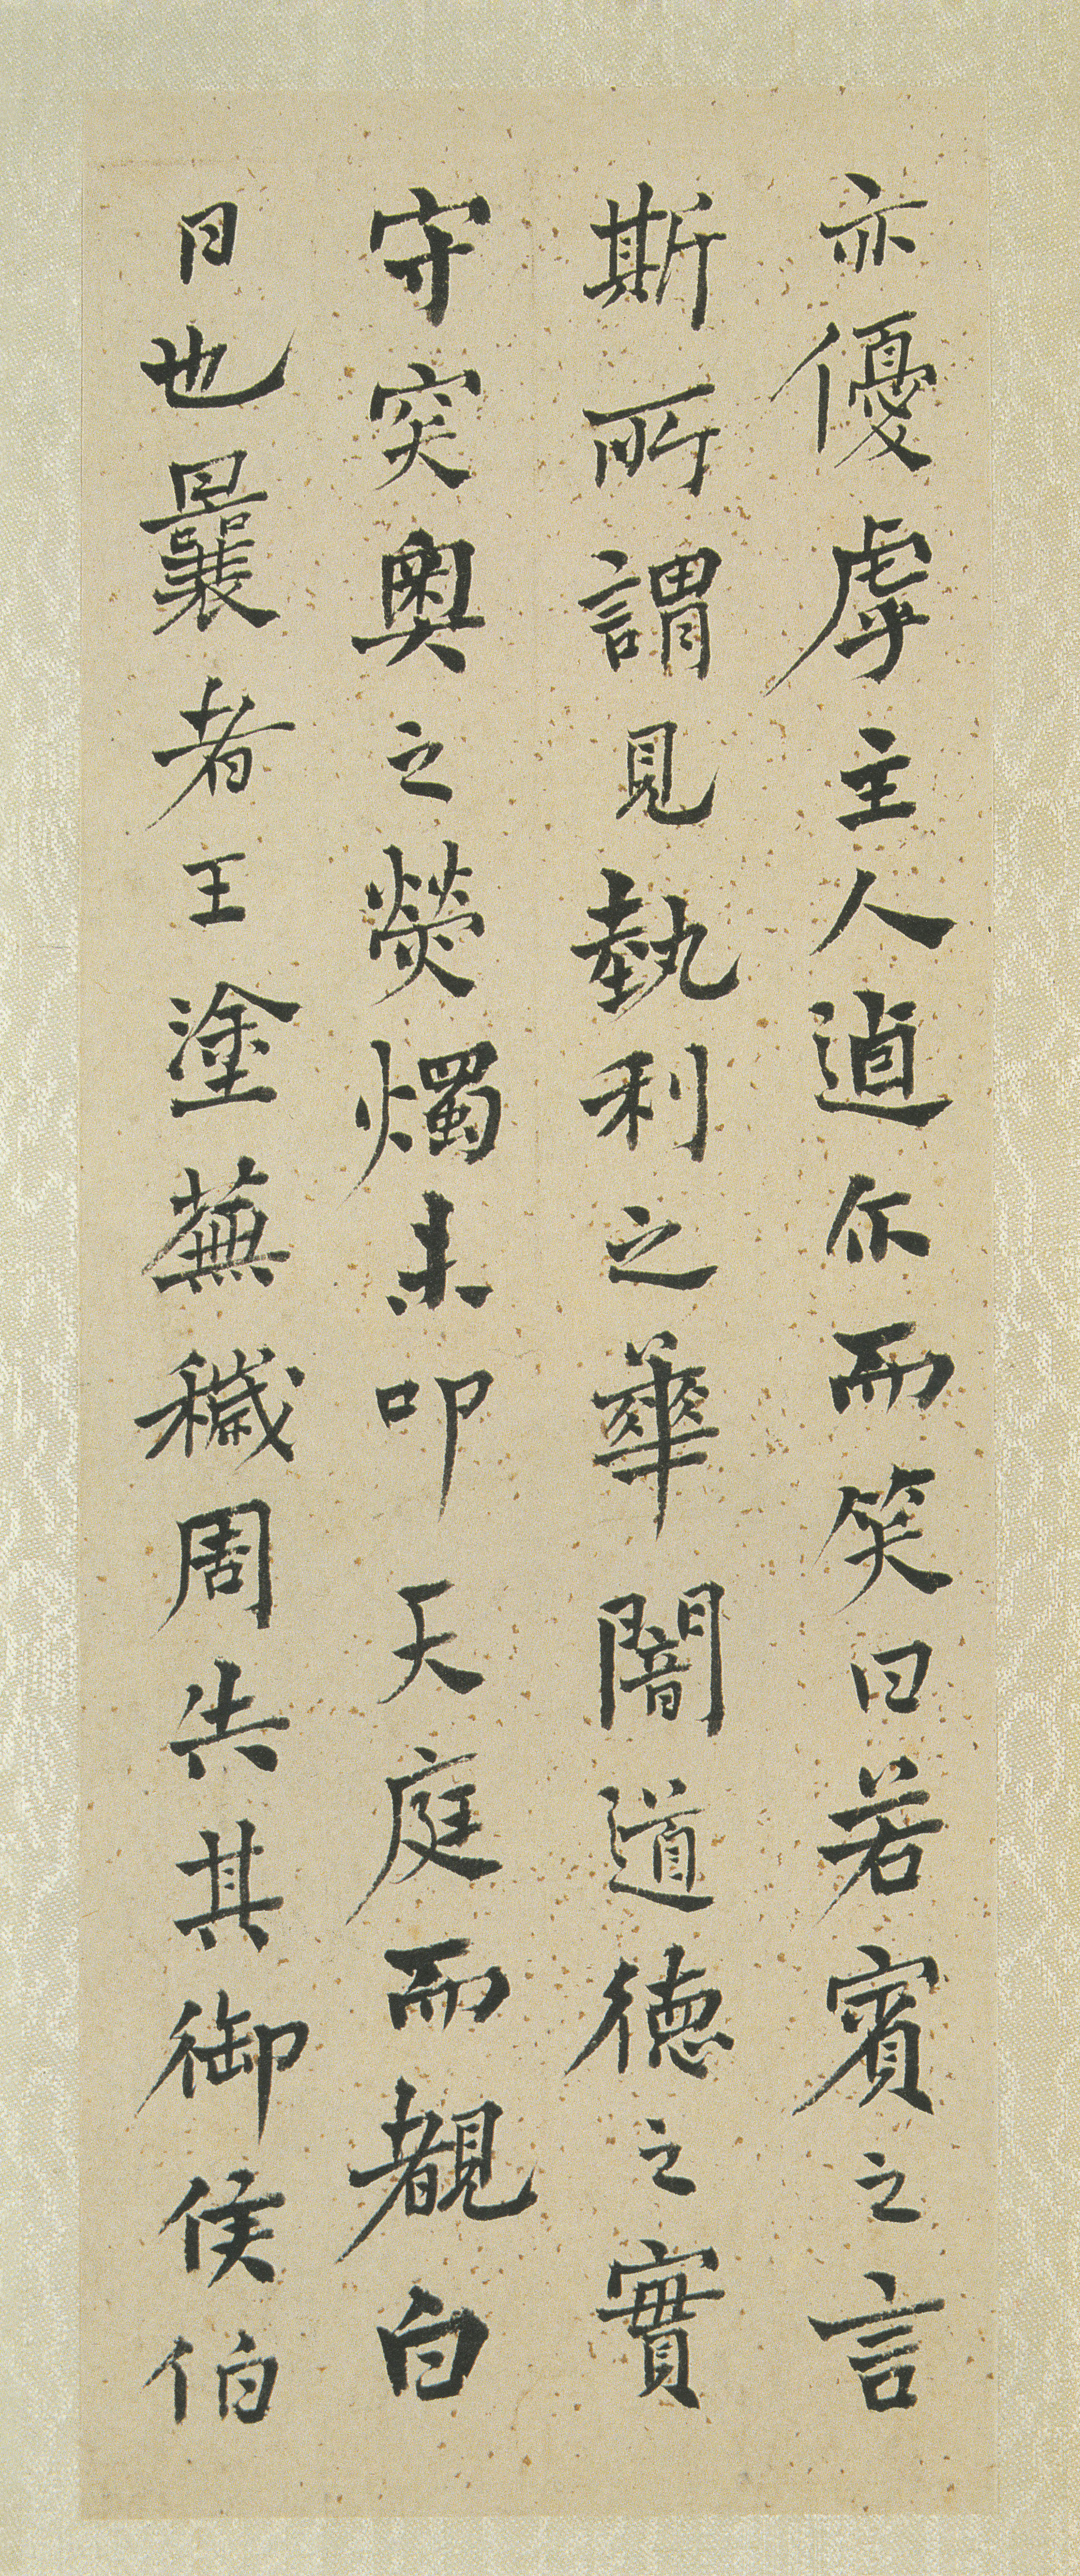 亦優虖主人逌尒而笑曰若賓之言
斯所謂見埶利之華闇道德之實
守突奧之熒燭未卬天庭而覩白
日也曩者王塗蕪穢周失其御侯伯